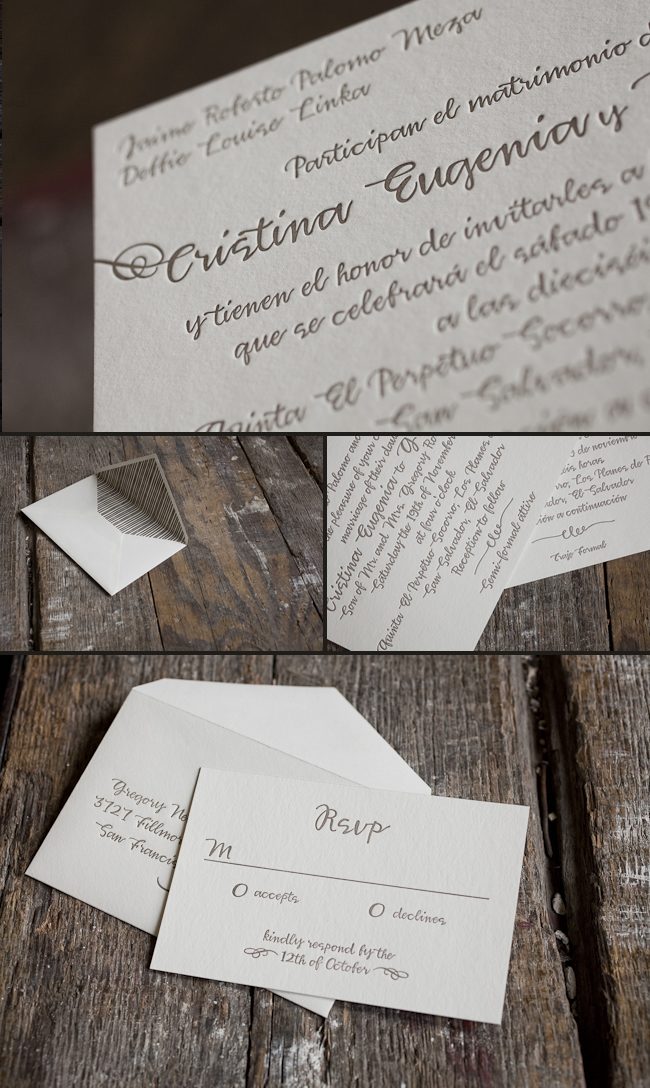 Jaime Roberto Palomo Meza
Debbie Louise Linka
Participan el matrimonio d
Cristina Eugenia y
y tienen el honor de invitarles a
que se celebrará el sábado 19
a las dieciséi
Quinta El Perpetuo Socorro,
San Salvador,
Palomo and
the pleasure of your
marriage of their dau
Cristina Eugenia to G
Son of Mr. and Mrs. Gregory Ro
Saturday the 19th of November
at four o'clock
Quinta El Perpetuo Socorro, Los Planes
San Salvador, El Salvador
Reception to follow
Semi-formal attire
de noviem
éis horas
corro, Los Planes de R
ador, El Salvador
ión a continuación
Traje Formal
Gregory Ne
3727 Fillmor
San Francis
RSVP
M
accepts
declines
kindly respond by the
12th of October